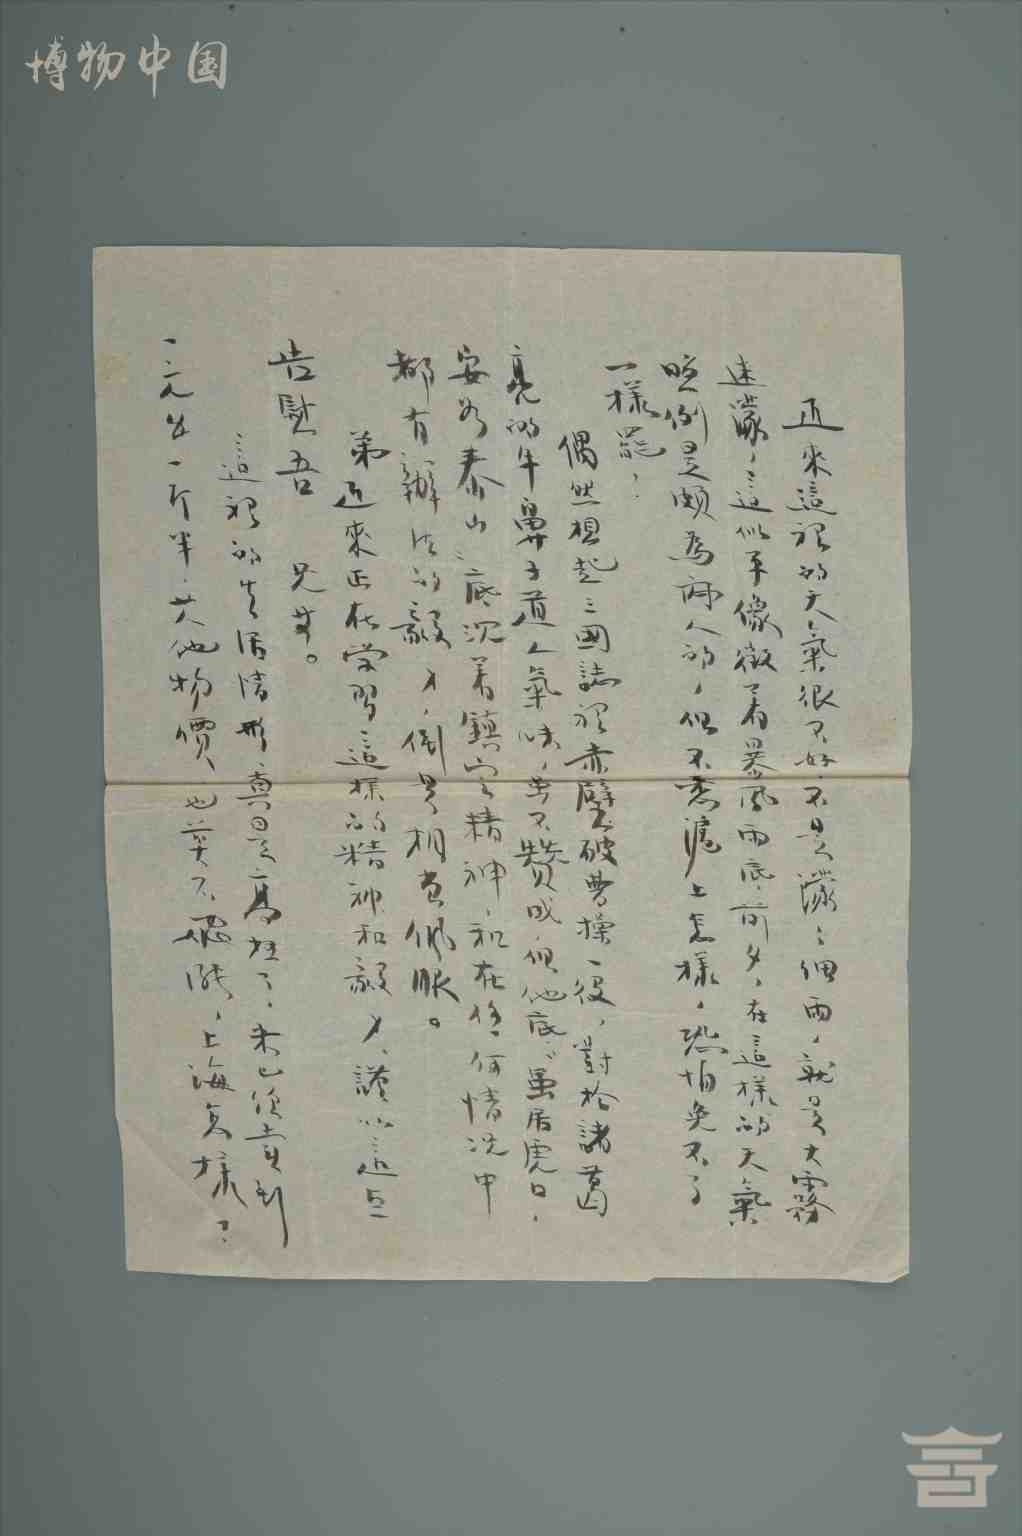 博物中国
近來這裡的天氣很不好，不是濛濛細雨，就是大霧
迷濛，這似乎像徵着暴風雨底前夕，在這樣的天氣
晚倒是頗為 人的，但不悉滬上怎樣，恐怕免不了
一樣罷？
偶然想起三國誌裡赤壁破曹操一役，對於諸葛
亮的牛鼻子道人氣味，虽不贊成，但他底“虽居虎口，
安若泰山”底沉着鎮定精神，和在任何情況中
都有辦法的毅力，倒是相當佩服。
弟近來正在学習這樣的精神和毅力，謹以這点
告慰吾 兄等。
這裡的生活情形真是高極了，米已漲賣到
一二元 一斤半，其他物價，也莫不飛漲，上海怎樣？